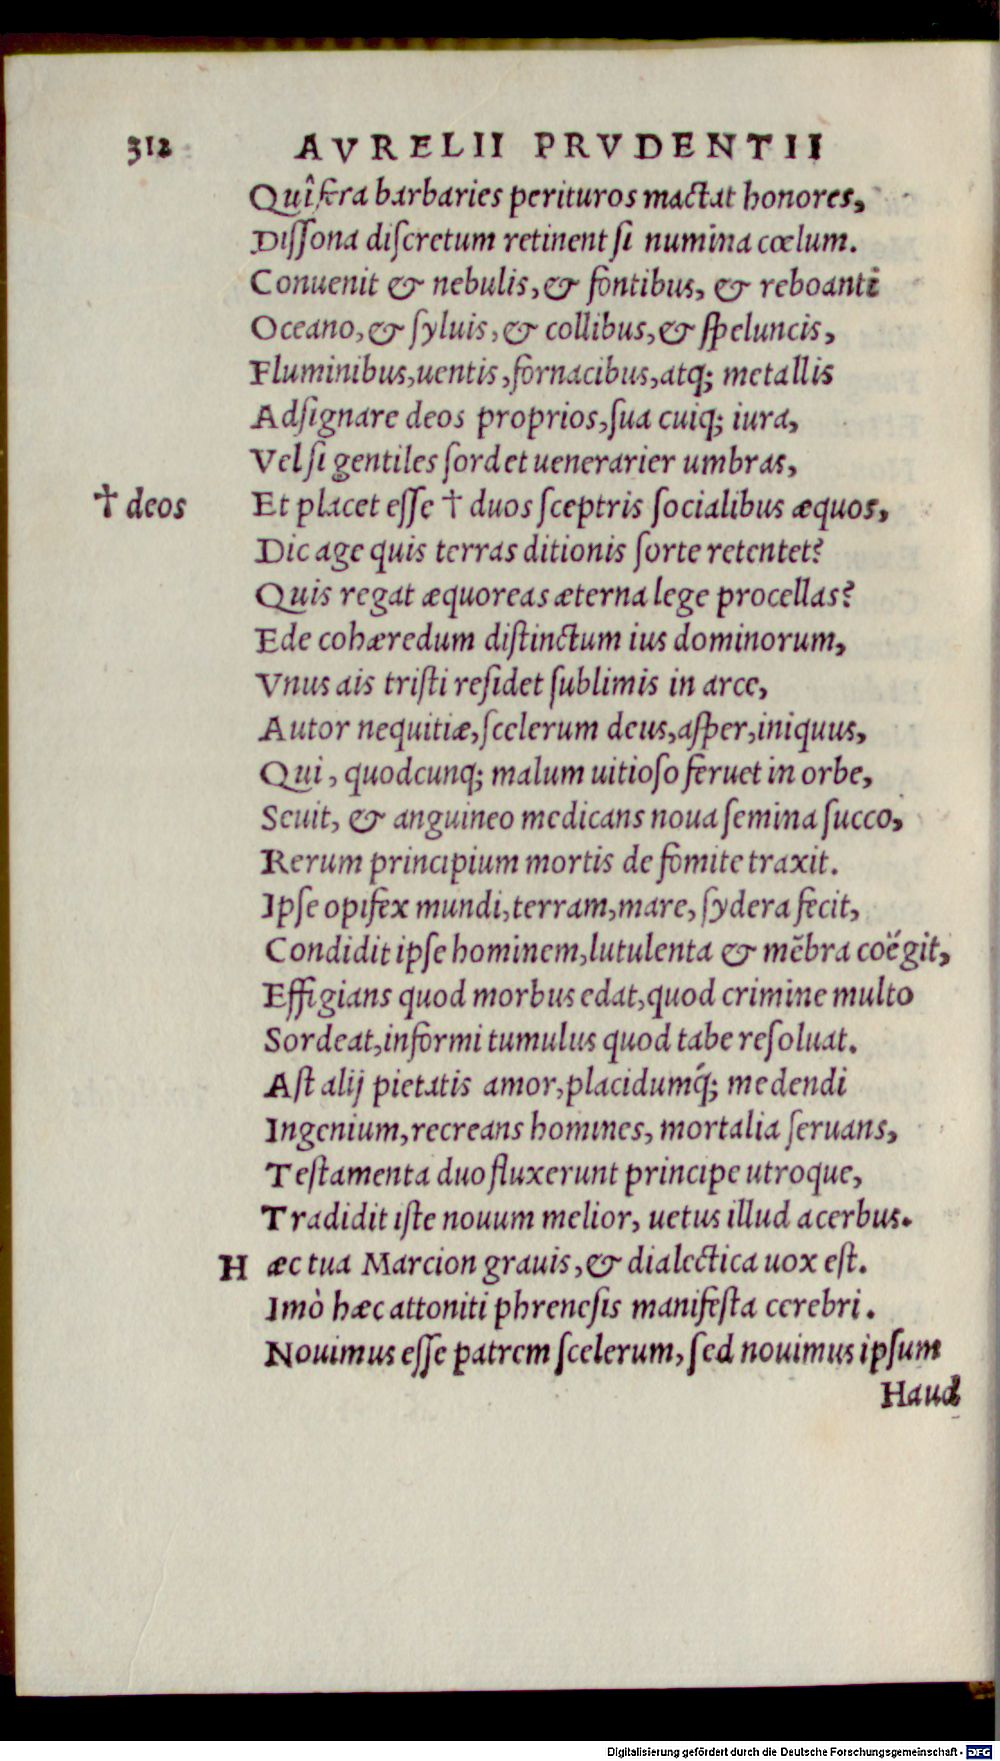 312 AVRELII PRVDENTII
Quî fera barbaries perituros mactat honores,
Diſſona diſcretum retinent ſi numina cœlum.
Conuenit & nebulis, & fontibus, & reboanti
Oceano, & ſyluis, & collibus, & ſpeluncis,
Fluminibus, uentis, fornacibus, atq; metallis
Adſignare deos proprios, ſua cuiq; iura,
Vel ſi gentiles ſordet uenerarier umbras,
† deos Et placet eſſe † duos ſceptris ſocialibus æquos,
Dic age quis terras ditionis ſorte retentet?
Quis regat æquoreas æterna lege procellas?
Ede cohæredum diſtinctum ius dominorum,
Vnus ais triſti reſidet ſublimis in arce,
Autor nequitiæ, ſcelerum deus, aſper, iniquus,
Qui, quodcunq; malum uitioſo feruet in orbe,
Seuit, & anguineo medicans noua ſemina ſucco,
Rerum principium mortis de fomite traxit.
Ipſe opifex mundi, terram, mare, ſydera fecit,
Condidit ipſe hominem, lutulenta & mẽbra coëgit,
Effigians quod morbus edat, quod crimine multo
Sordeat, informi tumulus quod tabe reſoluat.
Aſt alij pietatis amor, placidumq́; medendi
Ingenium, recreans homines, mortalia ſeruans,
Teſtamenta duo fluxerunt principe utroque,
Tradidit iſte nouum melior, uetus illud acerbus.
Hæc tua Marcion grauis, & dialectica uox eſt.
Imò hæc attoniti phreneſis manifeſta cerebri.
Nouimus eſſe patrem ſcelerum, ſed nouimus ipſum
Haud
Digitalisierung gefördert durch die Deutsche Forschungsgemeinschaft - DFG